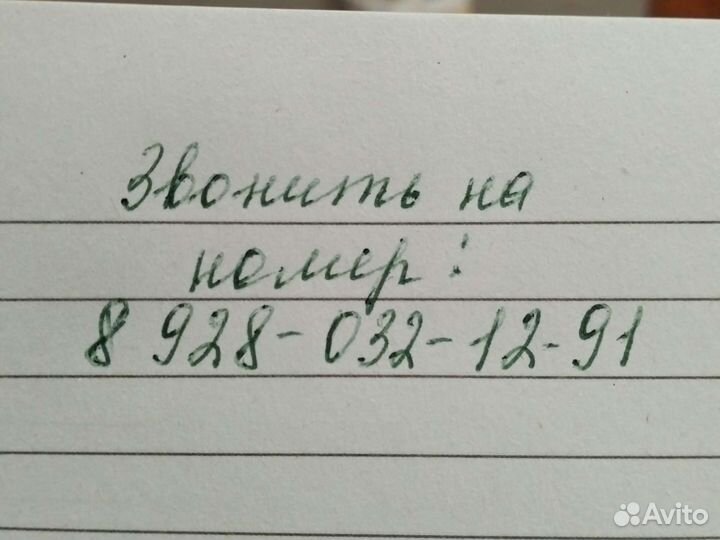 Звонить на
номер:
8 928-032-12-91
Avito